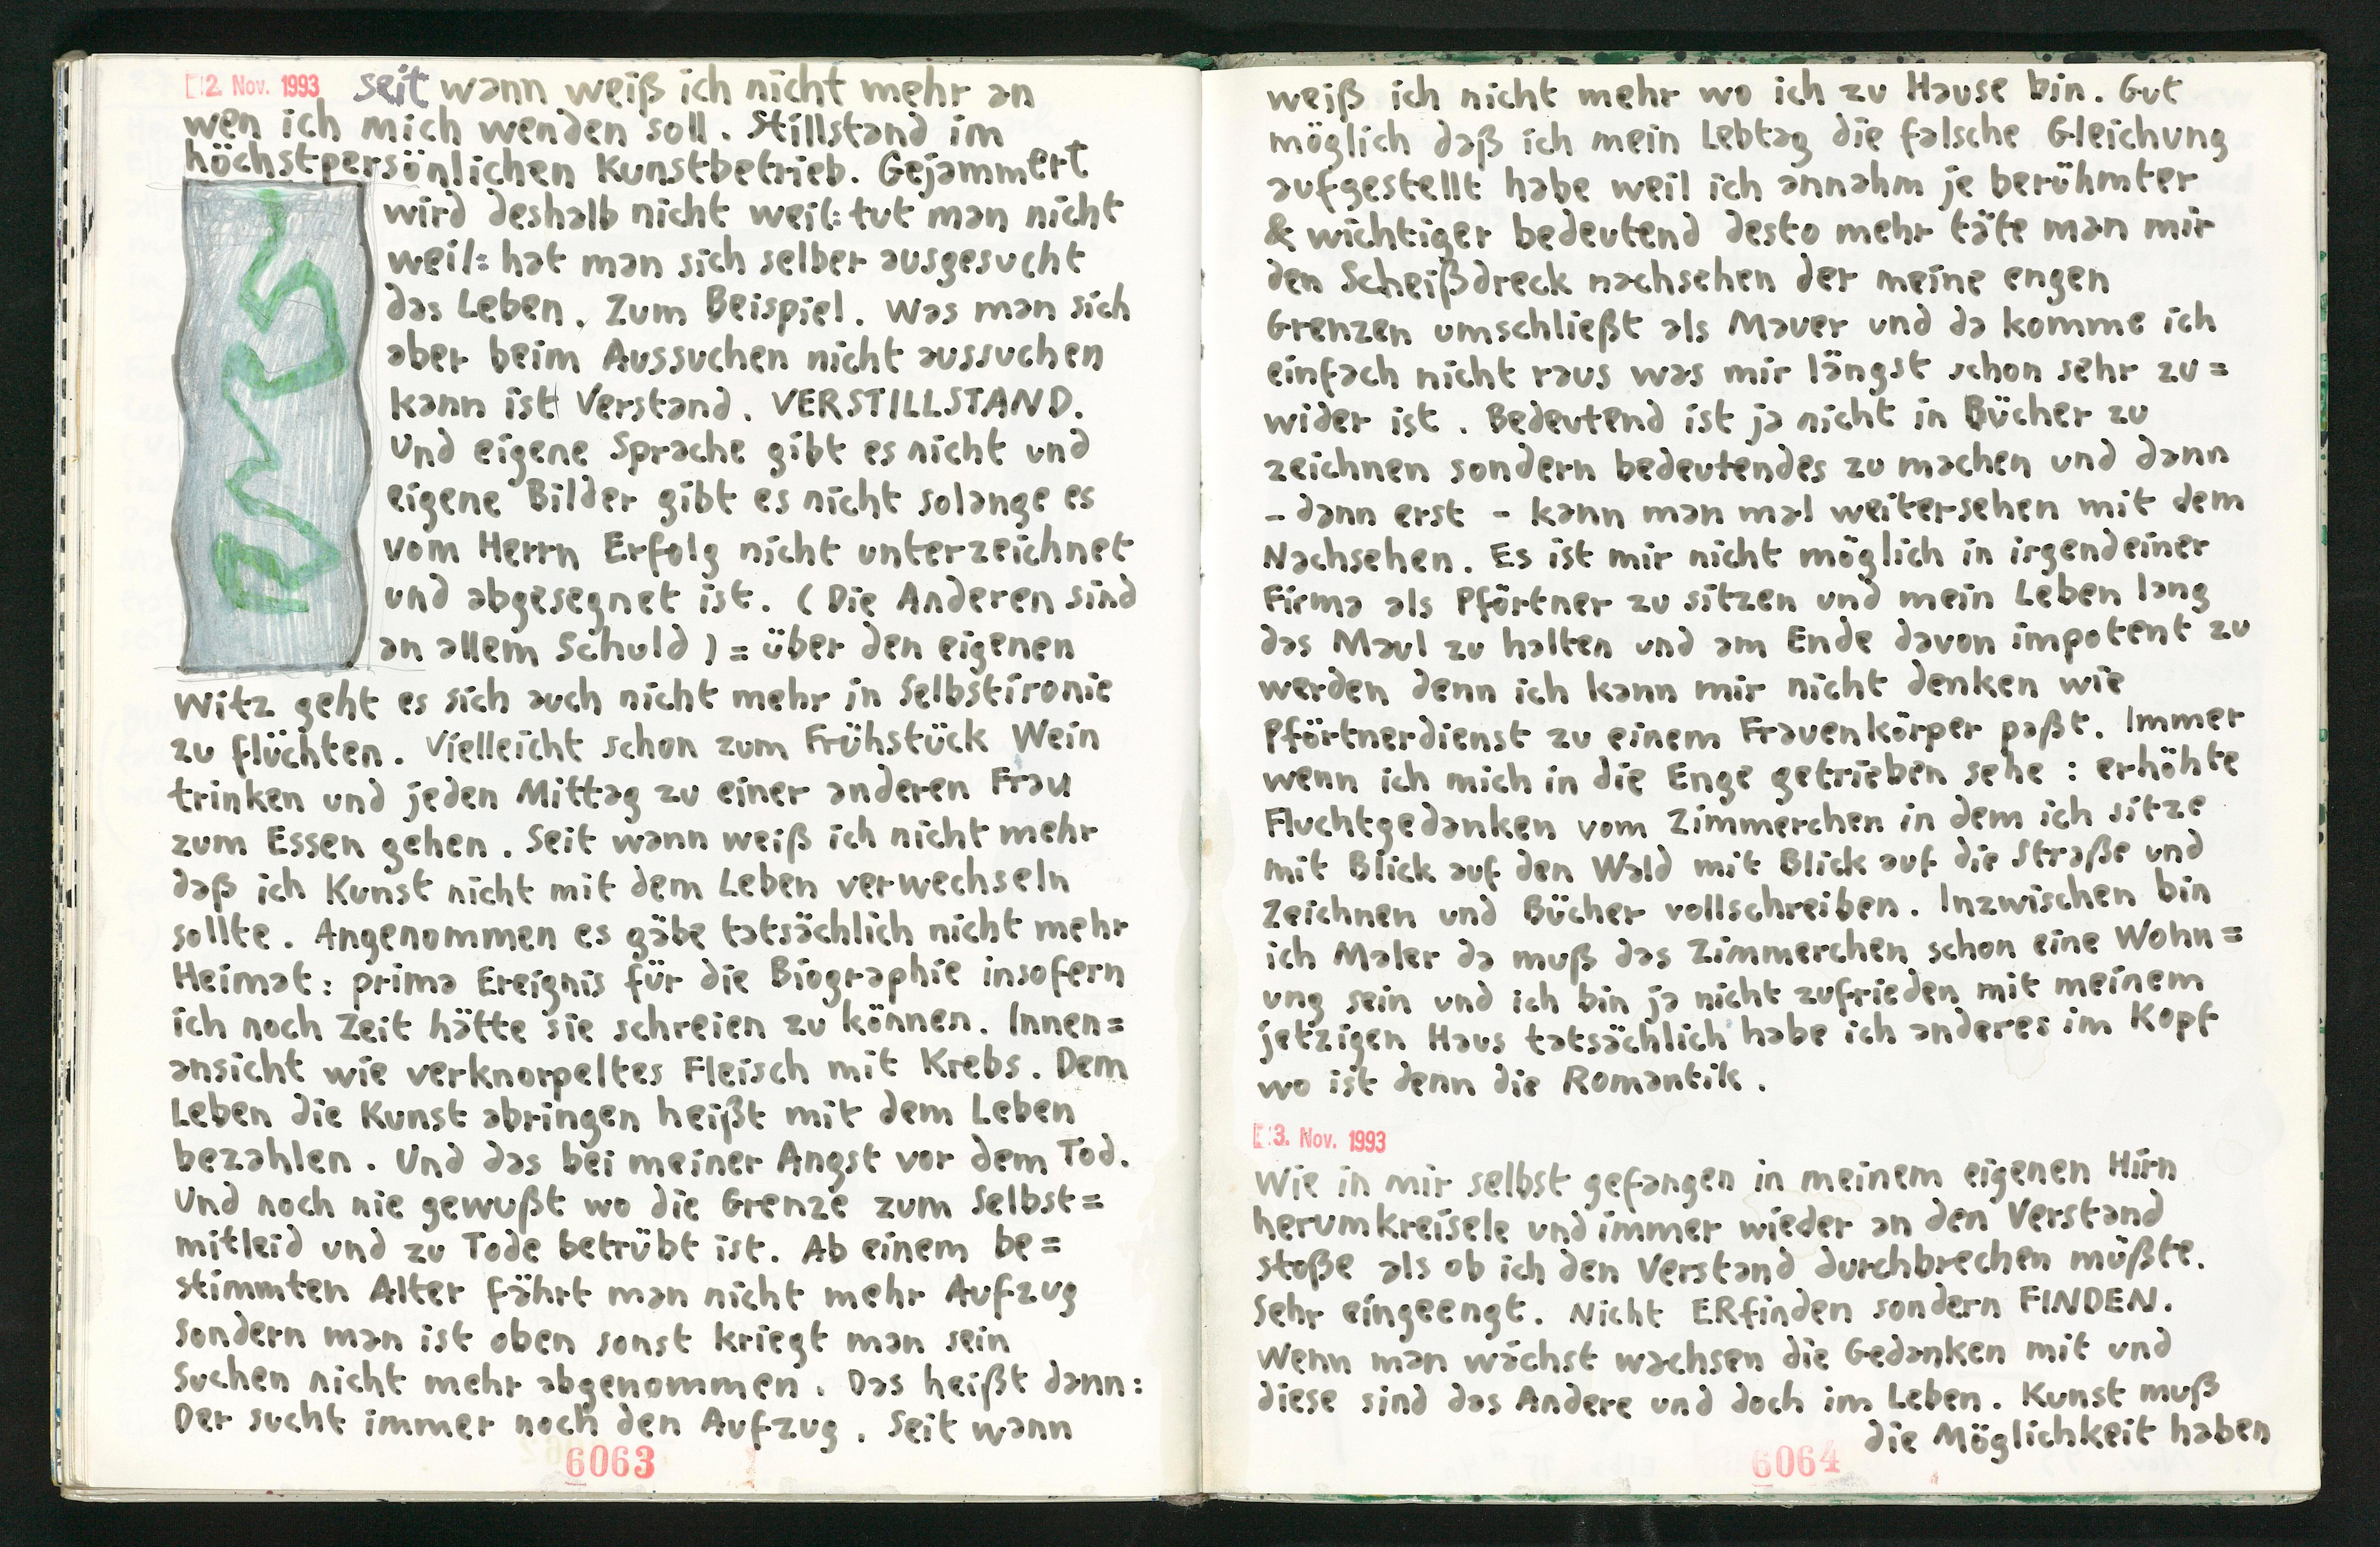 2. Nov. 1993 seit wann weiß ich nicht mehr an
wen ich mich wenden soll. Stillstand im
höchstpersönlichen Kunstbetrieb. Gejammert
wird deshalb nicht weil: tut man nicht
weil: hat man sich selber ausgesucht
das Leben. Zum Beispiel. Was man sich
aber beim Aussuchen nicht aussuchen
kann ist Verstand. VERSTILLSTAND.
Und eigene Sprache gibt es nicht und
eigene Bilder gibt es nicht solange es
vom Herrn Erfolg nicht unterzeichnet
und abgesegnet ist. (Die Anderen sind
an allem Schuld) = über den eigenen
Witz geht es sich auch nicht mehr in Selbstironie
zu flüchten. Vielleicht schon zum Frühstück Wein
trinken und jeden Mittag zu einer anderen Frau
zum Essen gehen. Seit wann weiß ich nicht mehr
daß ich Kunst nicht mit dem Leben verwechseln
sollte. Angenommen es gäbe tatsächlich nicht mehr
Heimat: prima Ereignis für die Biographie insofern
ich noch Zeit hätte sie schreien zu können. Innen=
ansicht wie verknorpeltes Fleisch mit Krebs. Dem
Leben die Kunst abringen heißt mit dem Leben
bezahlen. Und das bei meiner Angst vor dem Tod.
Und noch nie gewußt wo die Grenze zum Selbst=
mitleid und zu Tode betrübt ist. Ab einem be=
stimmten Alter fährt man nicht mehr Aufzug
sondern man ist oben sonst kriegt man sein
Suchen nicht mehr abgenommen. Das heißt dann:
Der sucht immer noch den Aufzug. Seit wann
6063
weiß ich nicht mehr wo ich zu Hause bin. Gut
möglich daß ich mein Lebtag die falsche Gleichung
aufgestellt habe weil ich annahm je berühmter
& wichtiger bedeutend desto mehr täte man mir
den Scheißdreck nachsehen der meine engen
Grenzen umschließt als Mauer und da komme ich
einfach nicht raus was mir längst schon sehr zu=
wider ist. Bedeutend ist ja nicht in Bücher zu
zeichnen sondern bedeutendes zu machen und dann
- dann erst - kann man mal weitersehen mit dem
Nachsehen. Es ist mir nicht möglich in irgendeiner
Firma als Pförtner zu sitzen und mein Leben lang
das Maul zu halten und am Ende davon impotent zu
werden denn ich kann mir nicht denken wie
Pförtnerdienst zu einem Frauenkörper paßt. Immer
wenn ich mich in die Enge getrieben sehe: erhöhte
Fluchtgedanken vom Zimmerchen in dem ich sitze
mit Blick auf den Wald mit Blick auf die Straße und
Zeichnen und Bücher vollschreiben. Inzwischen bin
ich Maler da muß das Zimmerchen schon eine Wohn=
ung sein und ich bin ja nicht zufrieden mit meinem
jetzigen Haus tatsächlich habe ich anderes im Kopf
wo ist denn die Romantik.
3. Nov. 1993
Wie in mir selbst gefangen in meinem eigenen Hirn
herumkreisele und immer wieder an den Verstand
stoße als ob ich den Verstand durchbrechen müßte.
Sehr eingeengt. Nicht ERfinden sondern FINDEN.
Wenn man wächst wachsen die Gedanken mit und
diese sind das Andere und doch im Leben. Kunst muß
die Möglichkeit haben
6064